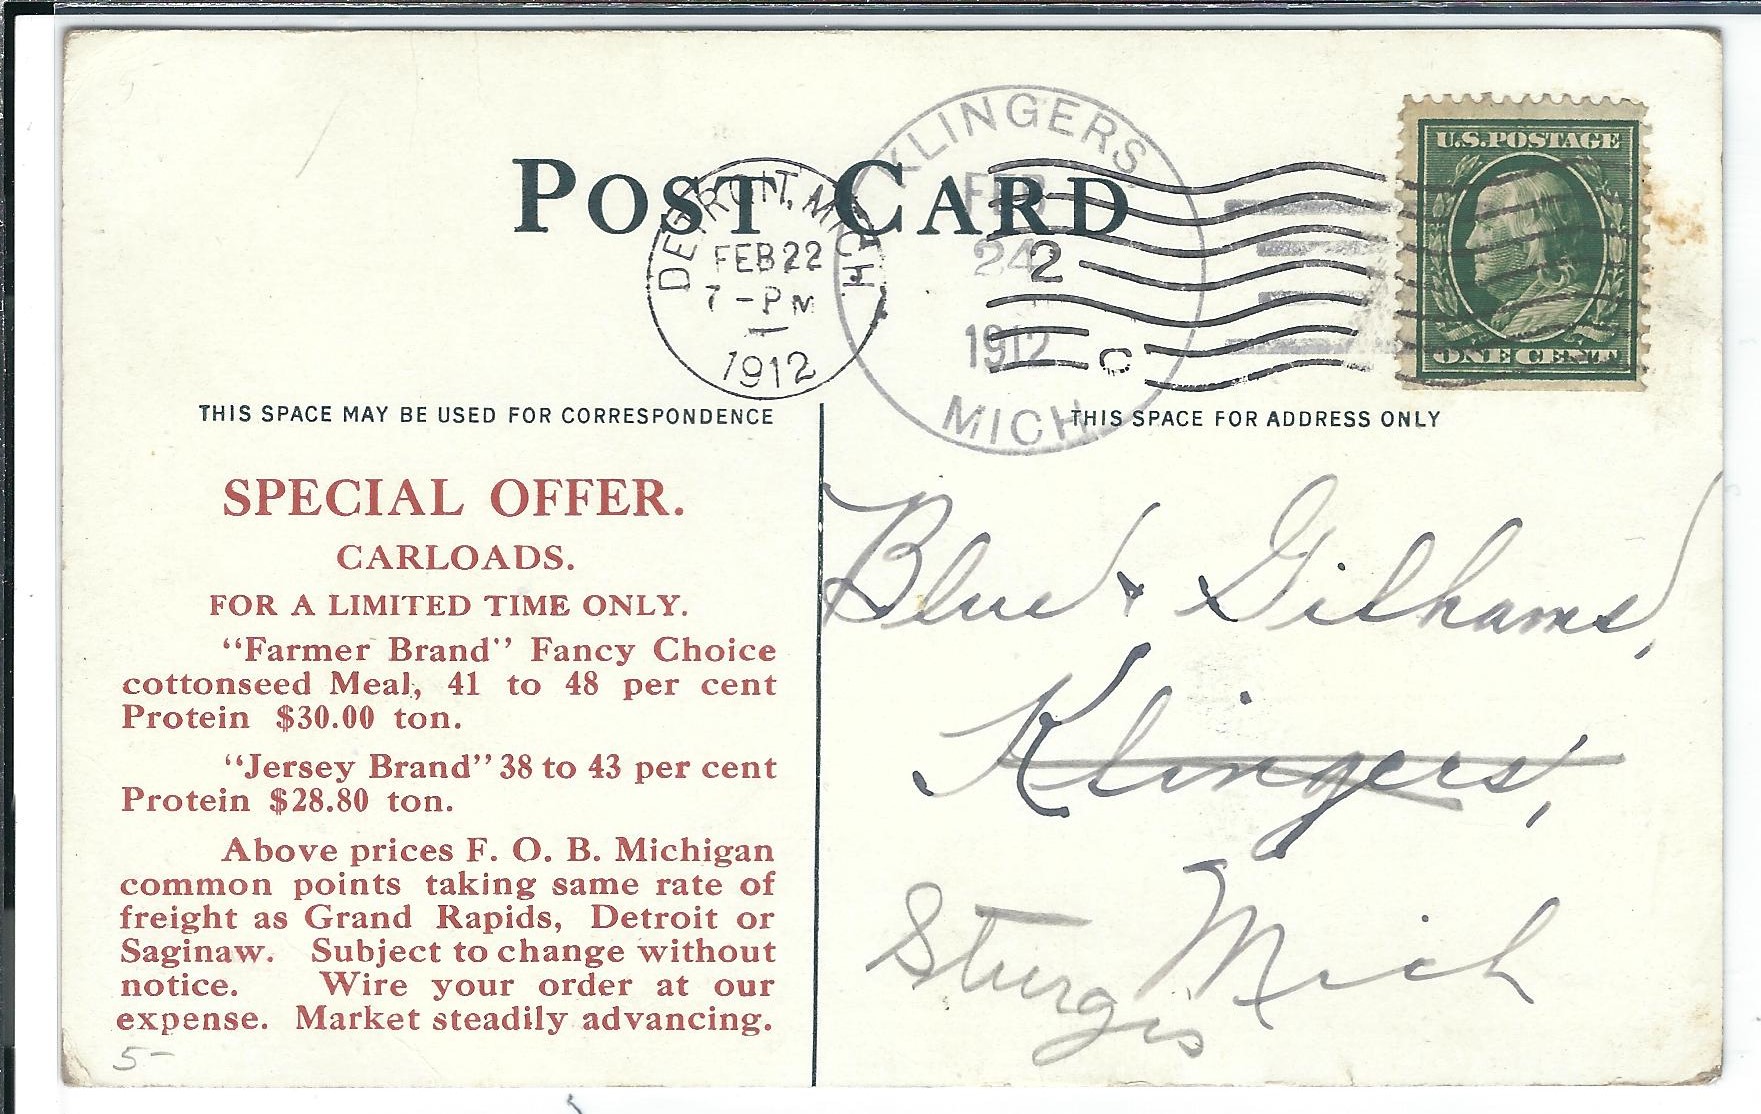 POST CARD
DETROIT, MICH.
FEB 22
7 - PM
1912
KLINGERS
FEB
24
1912
MICH
2
C
U.S. POSTAGE
ONE CENT
THIS SPACE MAY BE USED FOR CORRESPONDENCE
THIS SPACE FOR ADDRESS ONLY
SPECIAL OFFER.
CARLOADS.
FOR A LIMITED TIME ONLY.
"Farmer Brand" Fancy Choice
cottonseed Meal, 41 to 48 per cent
Protein $30.00 ton.
"Jersey Brand" 38 to 43 per cent
Protein $28.80 ton.
Above prices F. O. B. Michigan
common points taking same rate of
freight as Grand Rapids, Detroit or
Saginaw. Subject to change without
notice. Wire your order at our
expense. Market steadily advancing.
5-
Blue & Gilhams,
Klingers,
Mich
Sturgis